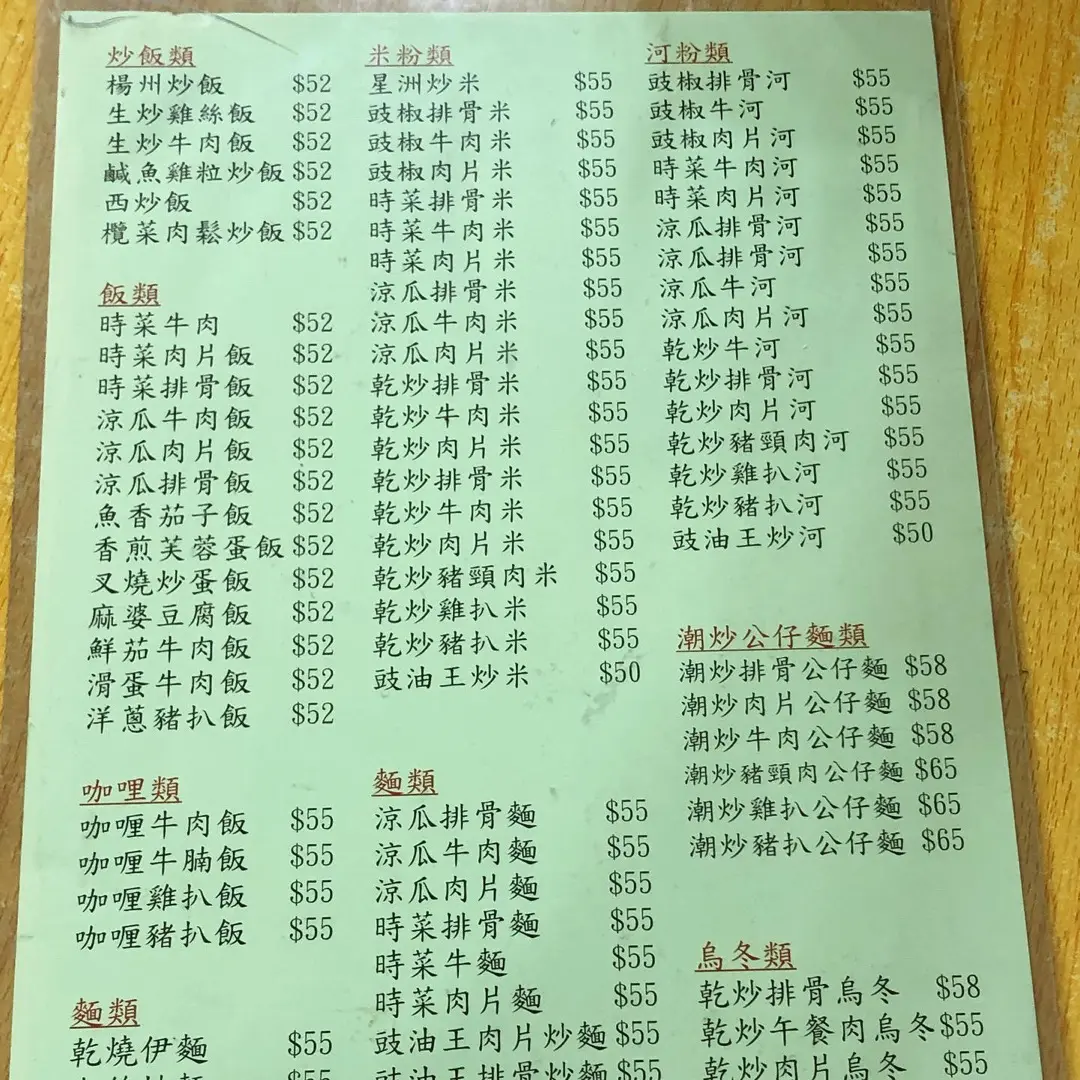 炒飯類
楊州炒飯 $52
生炒雞絲飯 $52
生炒牛肉飯 $52
鹹魚雞粒炒飯 $52
西炒飯 $52
欖菜肉鬆炒飯 $52
飯類
時菜牛肉 $52
時菜肉片飯 $52
時菜排骨飯 $52
涼瓜牛肉飯 $52
涼瓜肉片飯 $52
涼瓜排骨飯 $52
魚香茄子飯 $52
香煎芙蓉蛋飯 $52
叉燒炒蛋飯 $52
麻婆豆腐飯 $52
鮮茄牛肉飯 $52
滑蛋牛肉飯 $52
洋蔥豬扒飯 $52
咖哩類
咖喱牛肉飯 $55
咖喱牛腩飯 $55
咖喱雞扒飯 $55
咖喱豬扒飯 $55
麵類
乾燒伊麵 $55
米粉類
星洲炒米 $55
豉椒排骨米 $55
豉椒牛肉米 $55
豉椒肉片米 $55
時菜排骨米 $55
時菜牛肉米 $55
時菜肉片米 $55
涼瓜排骨米 $55
涼瓜牛肉米 $55
涼瓜肉片米 $55
乾炒排骨米 $55
乾炒牛肉米 $55
乾炒肉片米 $55
乾炒排骨米 $55
乾炒牛肉米 $55
乾炒肉片米 $55
乾炒豬頸肉米 $55
乾炒雞扒米 $55
乾炒豬扒米 $55
豉油王炒米 $50
麵類
涼瓜排骨麵 $55
涼瓜牛肉麵 $55
涼瓜肉片麵 $55
時菜排骨麵 $55
時菜牛麵 $55
時菜肉片麵 $55
豉油王肉片炒麵 $55
豉油王排骨炒麵 $55
河粉類
豉椒排骨河 $55
豉椒牛河 $55
豉椒肉片河 $55
時菜牛肉河 $55
時菜肉片河 $55
涼瓜排骨河 $55
涼瓜排骨河 $55
涼瓜牛河 $55
涼瓜肉片河 $55
乾炒牛河 $55
乾炒排骨河 $55
乾炒肉片河 $55
乾炒豬頸肉河 $55
乾炒雞扒河 $55
乾炒豬扒河 $55
豉油王炒河 $50
潮炒公仔麵類
潮炒排骨公仔麵 $58
潮炒肉片公仔麵 $58
潮炒牛肉公仔麵 $58
潮炒豬頸肉公仔麵 $65
潮炒雞扒公仔麵 $65
潮炒豬扒公仔麵 $65
烏冬類
乾炒排骨烏冬 $58
乾炒午餐肉烏冬 $55
乾炒肉片烏冬 $55